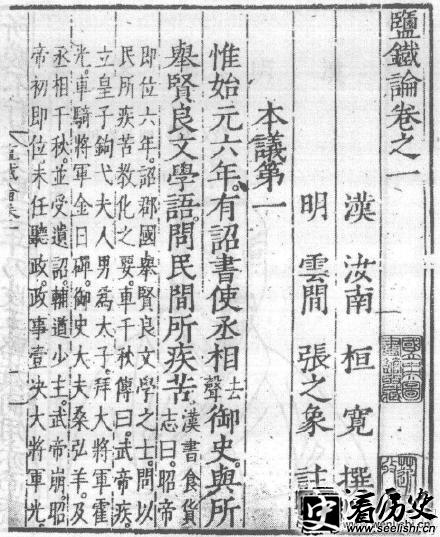 鹽鐵論卷之一
漢 汝南 桓寬 撰
明 雲間 張之象 註
本議第一
惟始元六年。有詔書使丞相去聲御史。與所
舉賢良文學語。問民間所疾苦。漢書食貨志曰。昭帝
即位六年。詔郡國舉賢良文學之士。問以
民所疾苦教化之要。車千秋傳曰。武帝疾。
立皇子鉤弋夫人男爲太子。拜大將軍霍
光。車騎將軍金日磾。御史大夫桑弘羊。及
丞相千秋。並受遺詔。輔道少主。武帝崩。昭
帝初即位。未任聽政。政事壹決大將軍光
史看历史
www.seelishi.cn